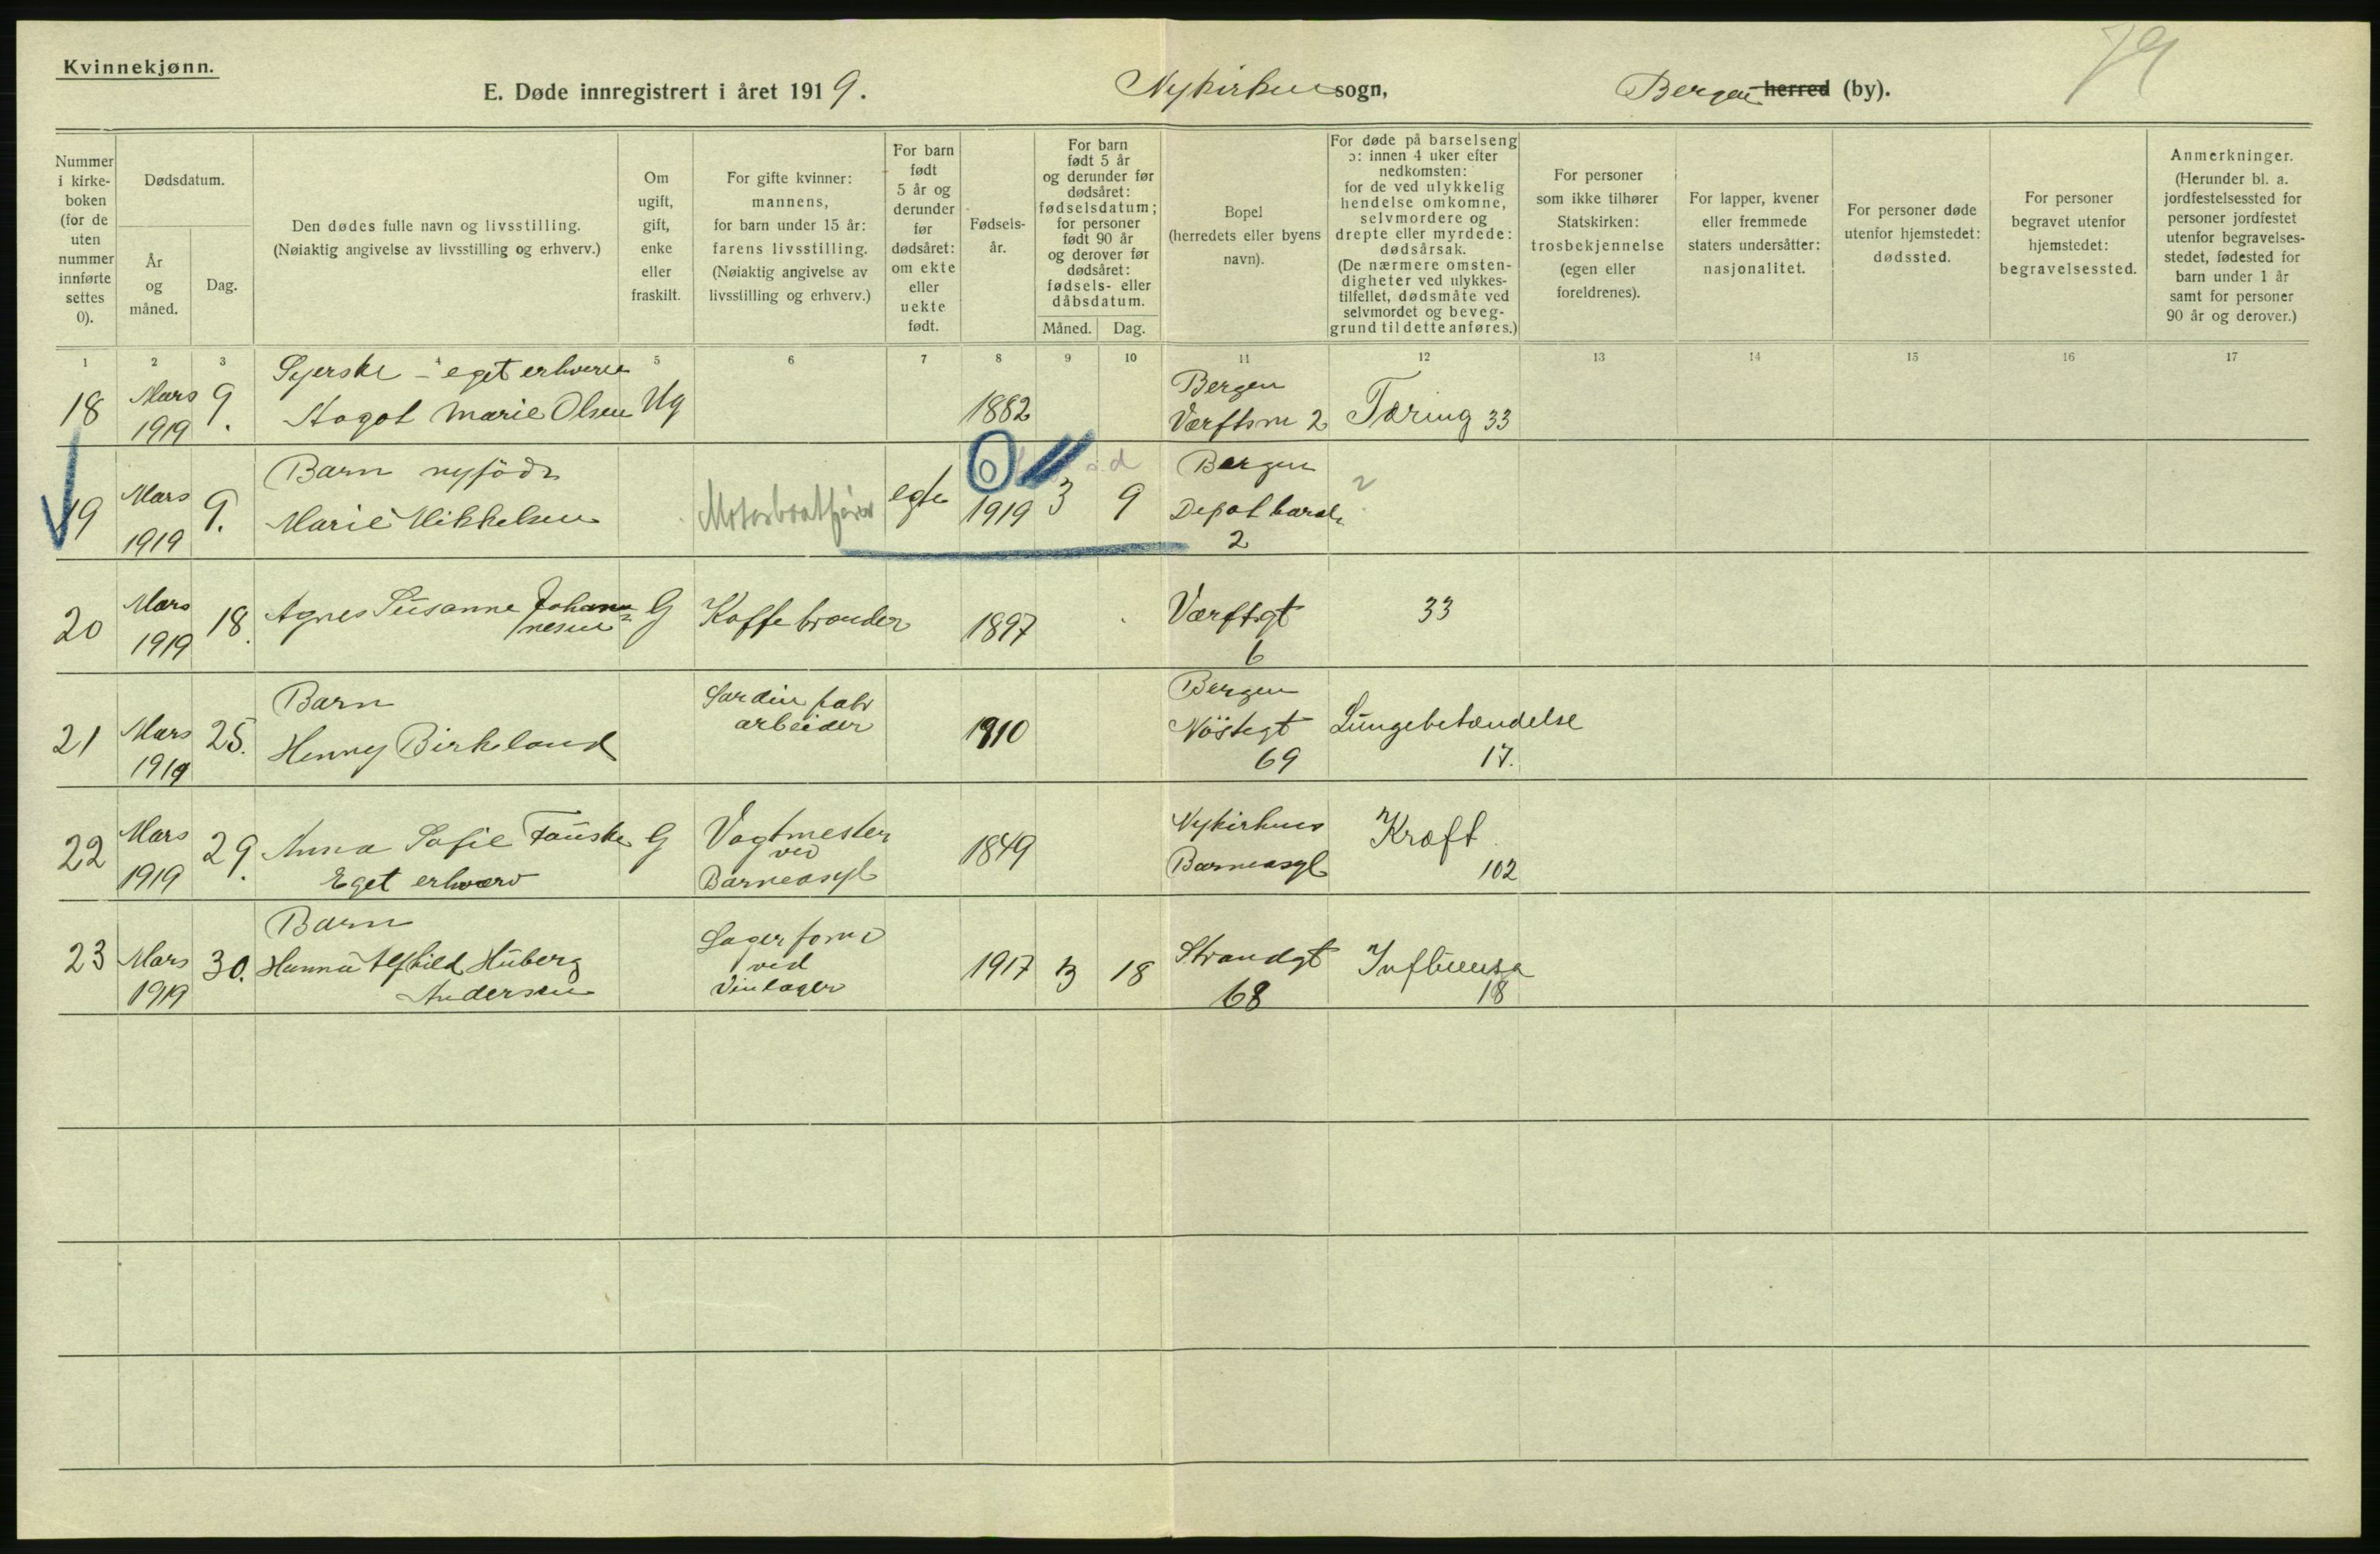 Kvinnekjønn.
79
E. Døde innregistrert i året 1919. Nykirkens sogn, Bergen herred (by).
Nummer i kirke- boken (for de uten nummer innførte settes 0).
Dødsdatum.
År og måned.
Dag.
Den dødes fulle navn og livsstilling.
(Nøiaktig angivelse av livsstilling og erhverv.)
Om ugift, gift, enke eller fraskilt.
For gifte kvinner: mannens, for barn under 15 år: farens livsstilling. (Nøiaktig angivelse av livsstilling og erhverv.)
For barn født 5 år og derunder før dødsåret: om ekte eller uekte født.
Fødsels- år.
For barn født 5 år og derunder før dødsåret: fødselsdatum; for personer født 90 år og derover før dødsåret: fødsels- eller dåbsdatum.
Måned.
Dag.
Bopel (herredets eller byens navn).
For døde på barselseng ɔ: innen 4 uker efter nedkomsten: for de ved ulykkelig hendelse omkomne, selvmordere og drepte eller myrdede: dødsårsak. (De nærmere omsten- digheter ved ulykkes- tilfellet, dødsmåte ved selvmordet og beveg- grund til dette anføres.)
For personer som ikke tilhører Statskirken: trosbekjennelse (egen eller foreldrenes).
For lapper, kvener eller fremmede staters undersåtter: nasjonalitet.
For personer døde utenfor hjemstedet: dødssted.
For personer begravet utenfor hjemstedet: begravelsessted.
Anmerkninger. (Herunder bl. a. jordfestelsessted for personer jordfestet utenfor begravelses- stedet, fødested for barn under 1 år samt for personer 90 år og derover.)
1 2 3 4 5 6 7 8 9 10 11 12 13 14 15 16 17
Syerske - eget erhverv Bergen
18 Mars 1919 9. Aagot Marie Olsen Ug 1882 Værftsm 2 Tæring 33
Barn nyfödt 0 Bergen
19 Mars 1919 9. Marie Mikkelsen Motorbaatfører egte 1919 3 9 Depotbarak 2
20 Mars 1919 18. Agnes Susanne Johannnesen G Kaffebrænder 1897 Værftsgt 6 33
Barn Sardinfabr Bergen
21 Mars 1919 25. Henny Birkeland arbeider 1910 Nöstegt 69 Lungebetændelse 17.
22 Mars 1919 29. Anna Sofie Fauske G Vagtmester ved Barneasyl 1849 Nykirkens Barneasyl Kræft 102
Eget erhværv
Barn
23 Mars 1919 30. Hanna Alfhild Huberg Andersen Lagerform ved Vinlager 1917 3 18 Strandgt 68 Influensa 18